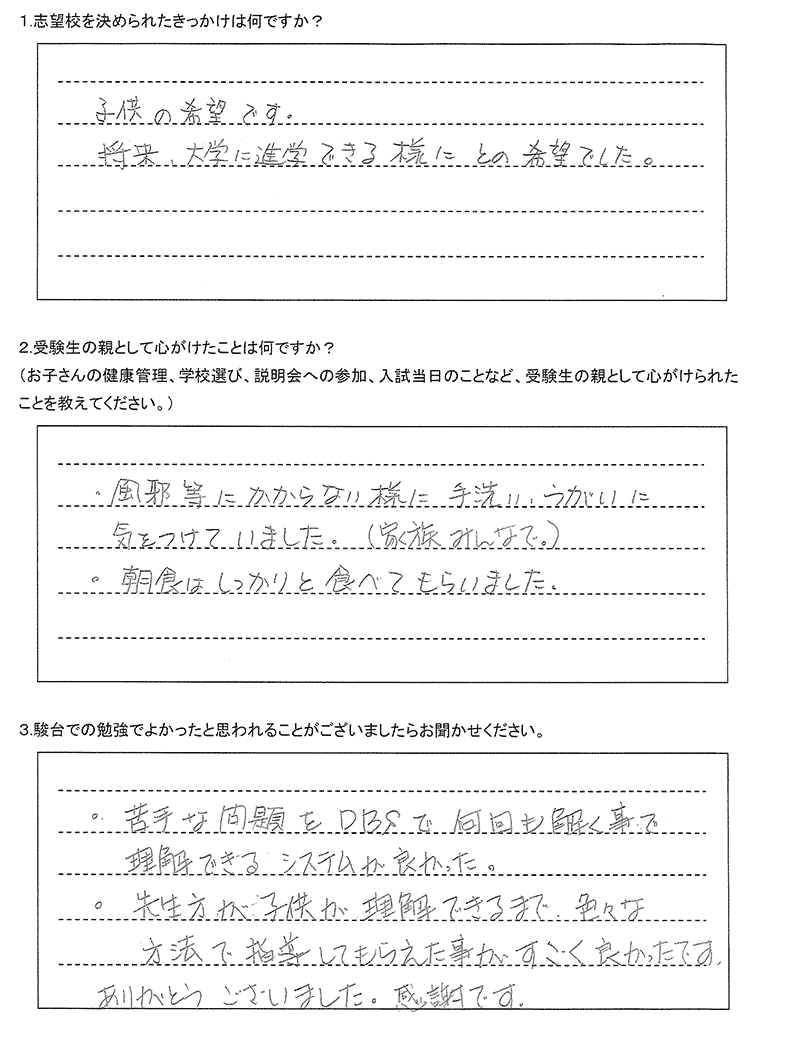 1.志望校を決められたきっかけは何ですか？
子供の希望です。
将来、大学に進学できる様に との希望でした。
2.受験生の親として心がけたことは何ですか？
（お子さんの健康管理、学校選び、説明会への参加、入試当日のことなど、受験生の親として心がけられた
ことを教えてください。）
・風邪等にかからない様に 手洗い、うがいに
気をつけていました。（家族みんなで。）
・朝食はしっかりと食べてもらいました。
3.駿台での勉強でよかったと思われることがございましたらお聞かせください。
・苦手な問題をDBSで何回も解く事で
理解できるシステムが良かった。
・先生方が子供が理解できるまで、色々な
方法で指導してもらえた事がすごく良かったです。
ありがとうございました。感謝です。